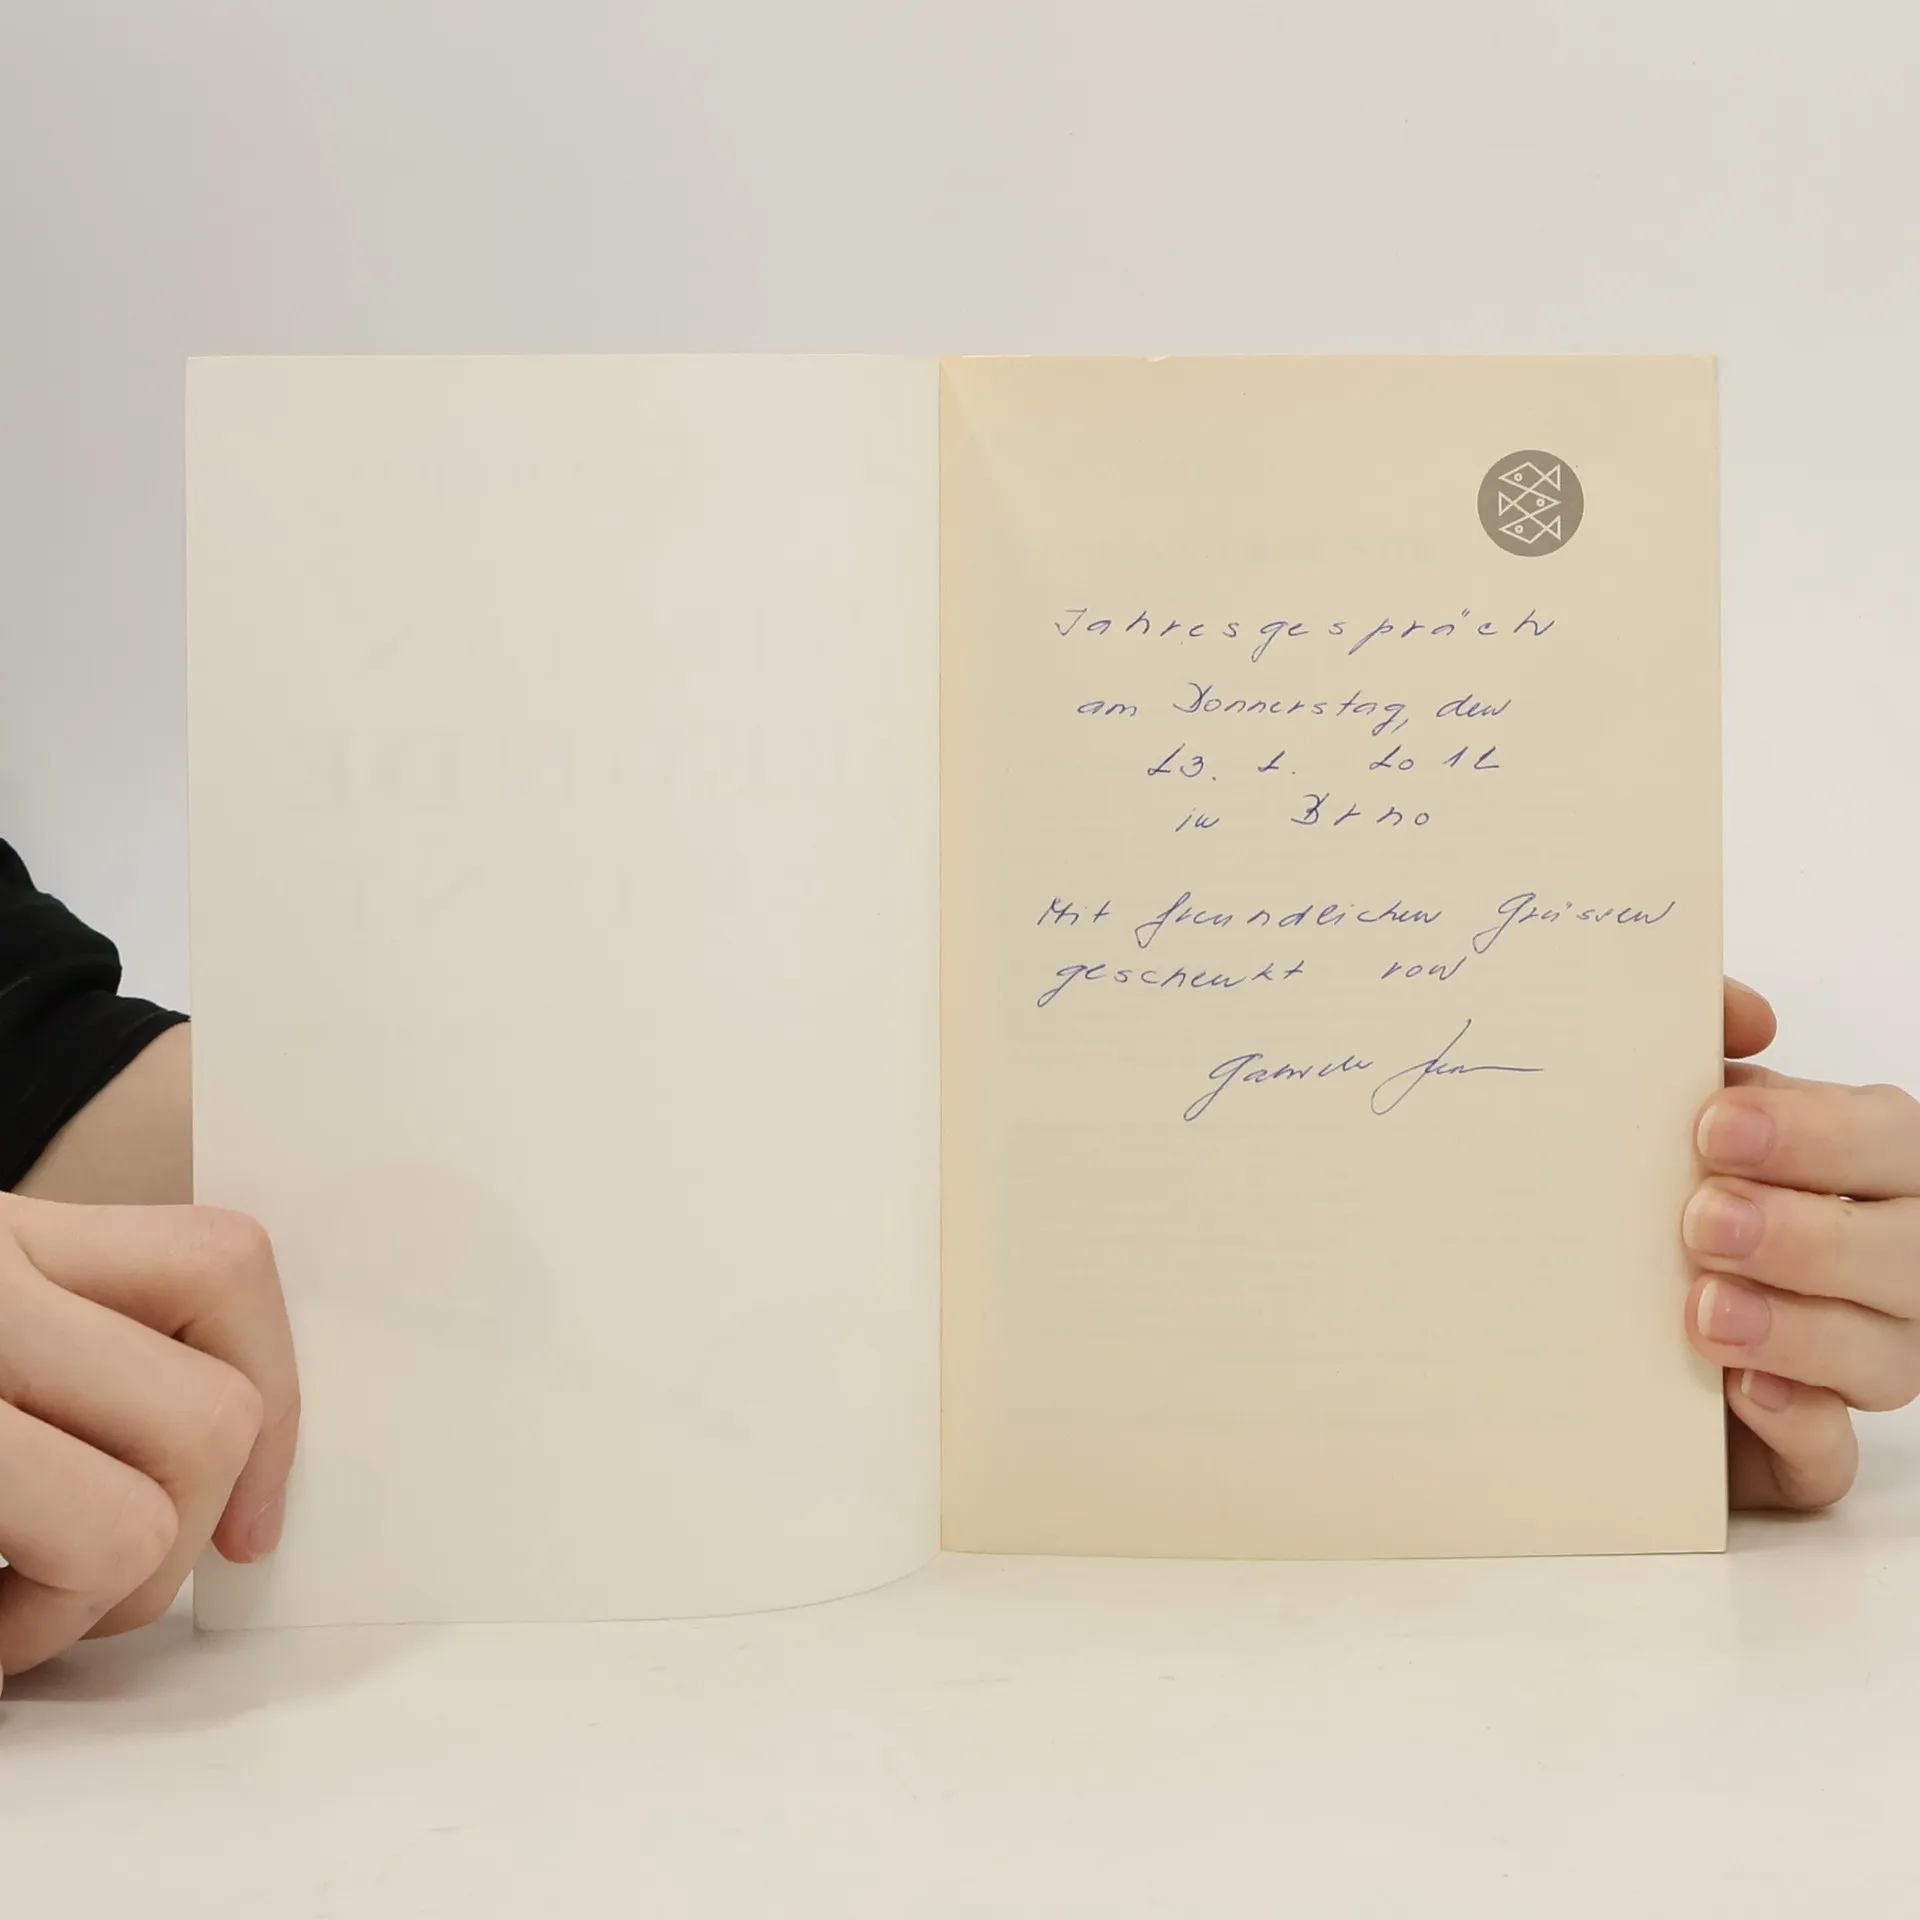 Jahresgespräch
am Donnerstag, den
23. 2. 2012
in Brno
Mit freundlichen Grüssen
geschenkt von
Gabriele